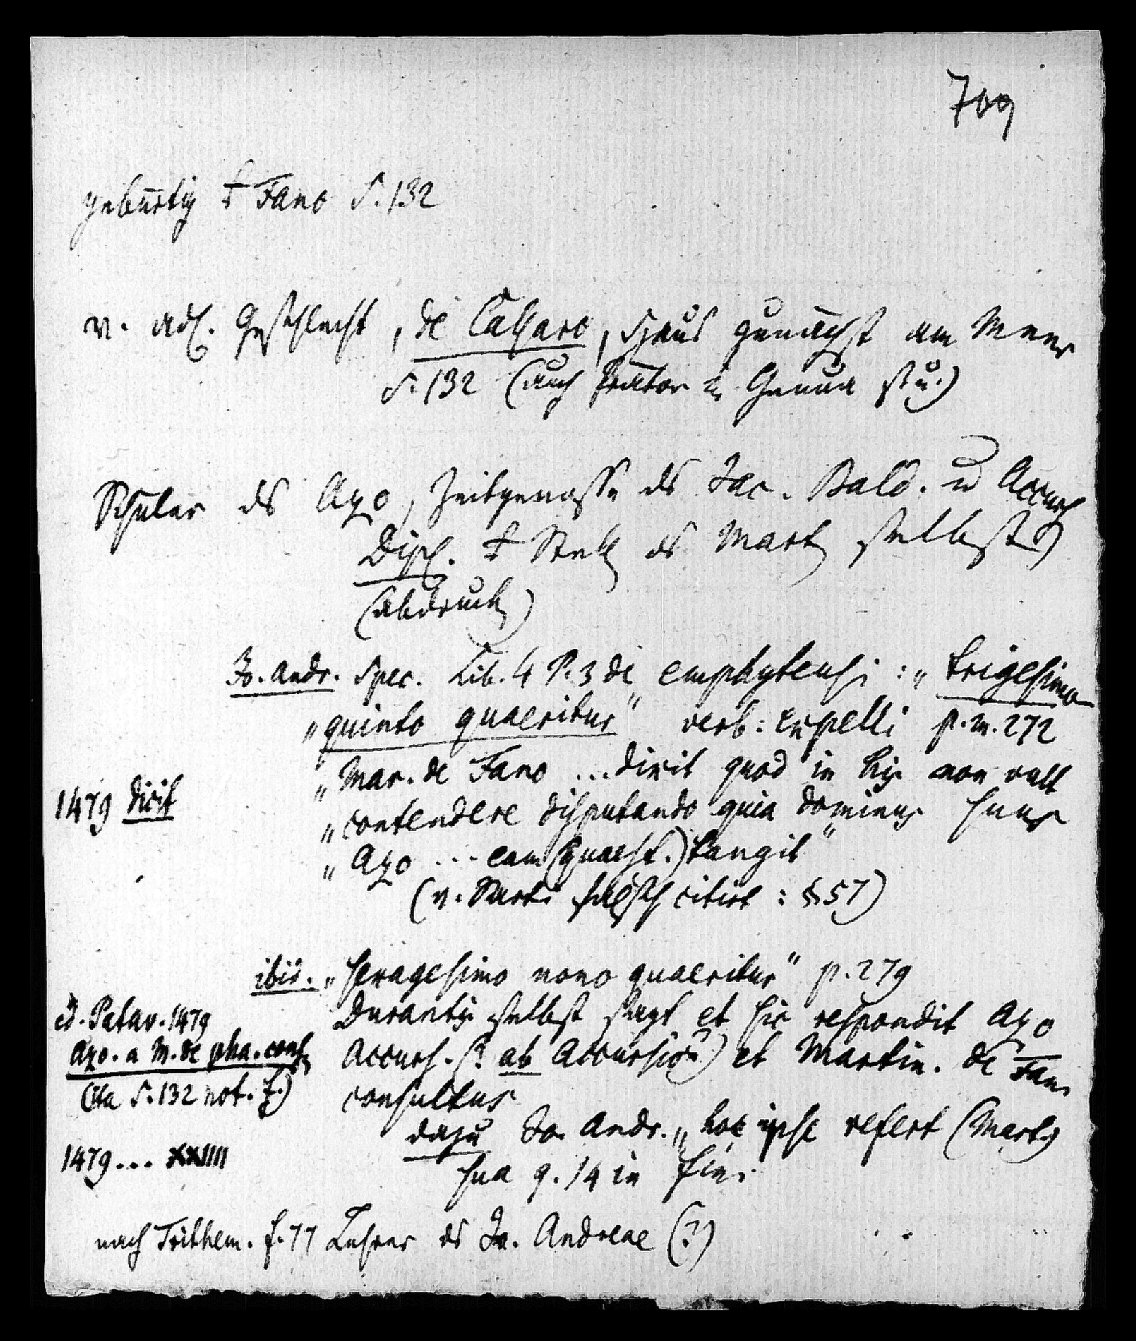 709
gebürtig Fano S. 132
v. adl. Geschlecht, de Cassaro, Haus zunächst am Meer
S. 132 (auch Prätor in Genua st u.)
Schüler des Azo, Zeitgenosse des Jac. Bald. u Accurs
Disp. Stell des Mart selbst
(abdruck)
Jo. Andr. Spec. Lib. 4 P. 3 de emphyteusi: „trigesimo
„quinto quaeritur" verb: expelli p. m. 272
„Mar. de Fano ... dixit quod in his non vult
1479 dicit
„contendere disputando quia dominus suus
„Azo ... eam (quaest.) tangit"
(v. Sarti falsch citirt: §57)
ibid. „sexagesimo nono quaeritur" p. 279
Durantis selbst sagt et sic respondit Azo
Ed. Patav. 1479
Azo. a M. de pha. cons
Accurs. (? ab Accursio?) et Martin. de Fano
(Cta S. 132 not. f.)
consultus
dazu Jo Andr. „hoc ipse refert (Mart)
1479 ... xxiiii
sua q. 14 in fin.
nach Trithem. f. 77 Lehrer des Jo. Andreae (?)